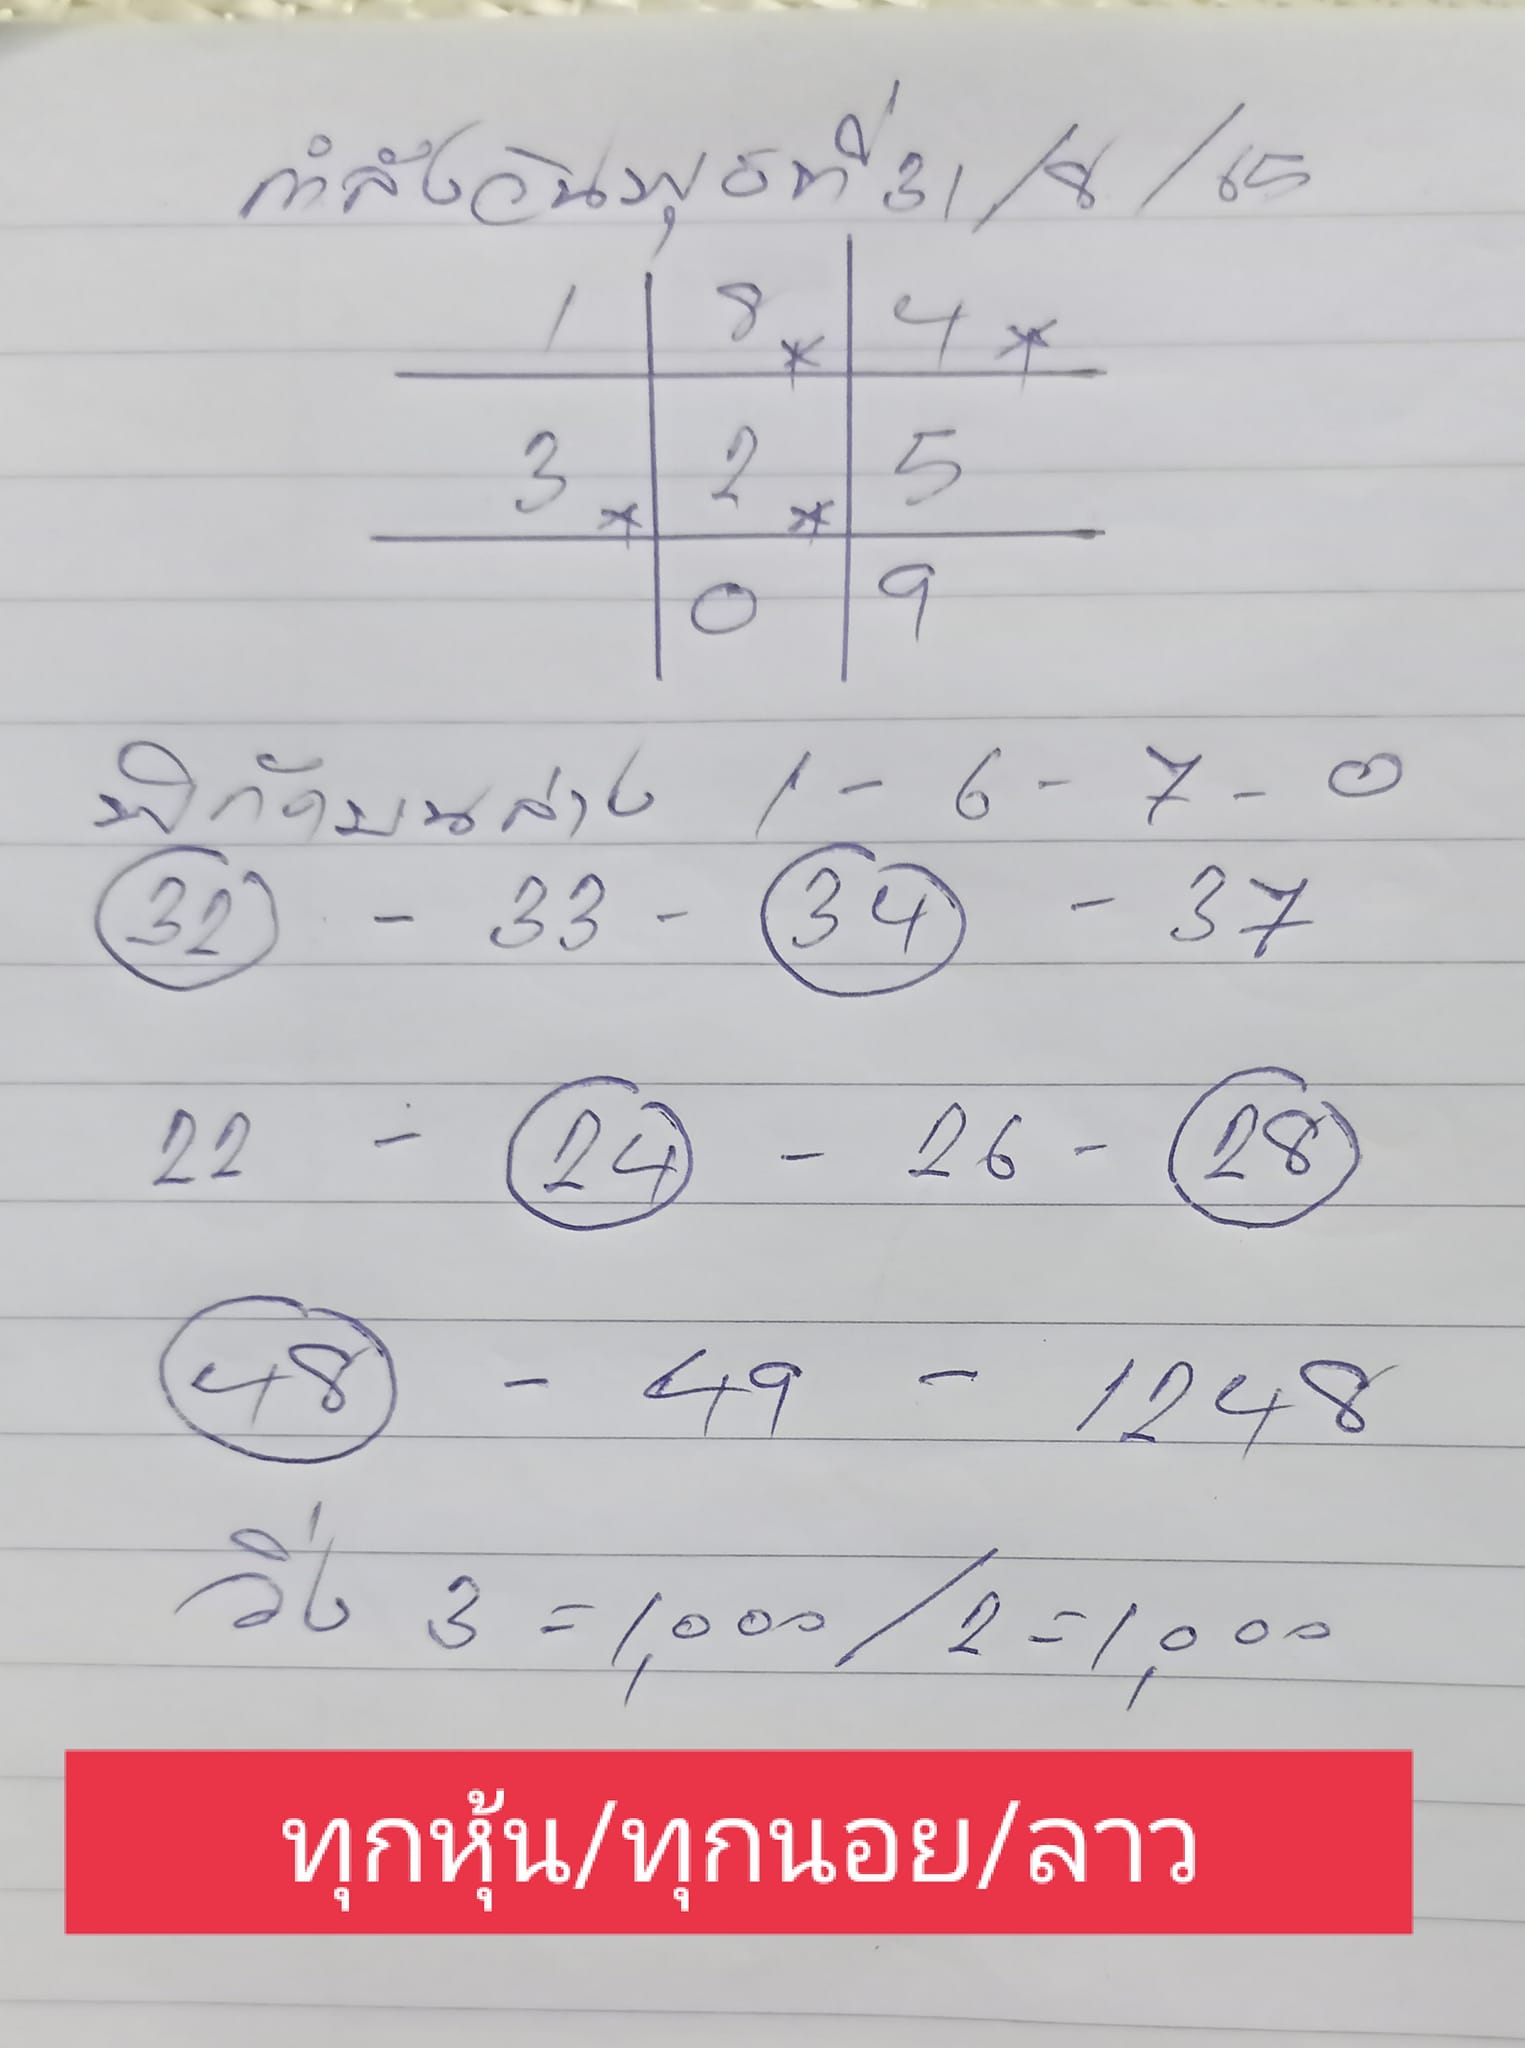 กำลังวันพุธที่ 31/8/65
1 8* 4*
3* 2* 5
0 9
พิกัดบนล่าง 1 - 6 - 7 - 0
32 - 33 - 34 - 37
22 - 24 - 26 - 28
48 - 49 - 1248
วิ่ง 3 = 1,000 / 2 = 1,000
ทุกหุ้น/ทุกนอย/ลาว